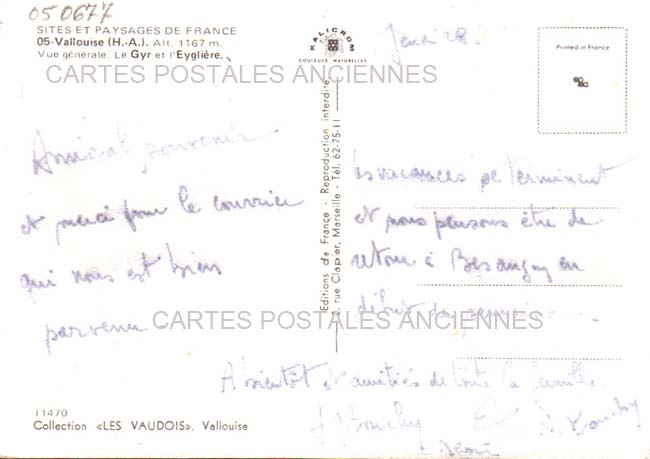 050677
SITES ET PAYSAGES DE FRANCE
05-Vallouise (H.-A.). Alt. 1167 m.
Vue générale. Le Gyr et l'Eyglière.
CARTES POSTALES ANCIENNES
KALICROM
COULEURS NATURELLES
Jeudi 28.
Printed in France
Amical souvenir
et merci pour le courrier
qui nous est bien
parvenu.
Editions de France - Reproduction interdite
2, rue Clapier, Marseille - Tél. 62-75-11
Les vacances se terminent
et nous pensons être de
retour à Besançon en
début de semaine.
CARTES POSTALES ANCIENNES
A bientôt et amitiés de toute la famille.
11470
Collection «LES VAUDOIS», Vallouise